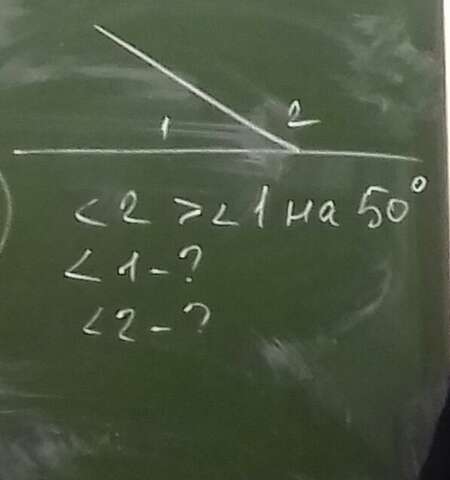 1 2
<2 > <1 на 50°
<1-?
<2-?